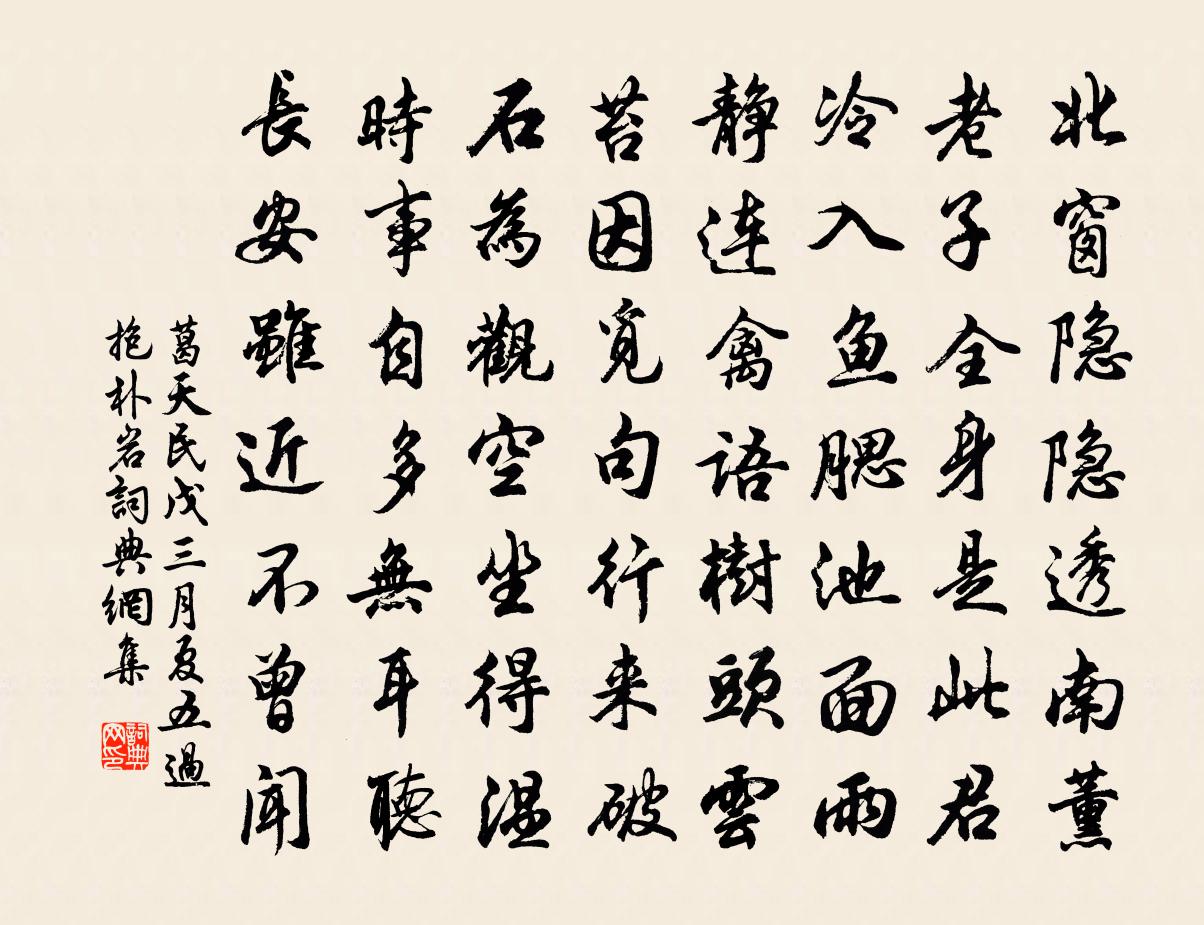 北窗隐隐透南薰
老子全身是此君
冷入魚腮池面雨
靜連禽語樹頭雲
苔因覓句行来破
石為觀空坐得温
時事自多無耳聽
長安雖近不曾闻
葛天民戊三月夏五過
抱朴岩詞典網集
詞典网印